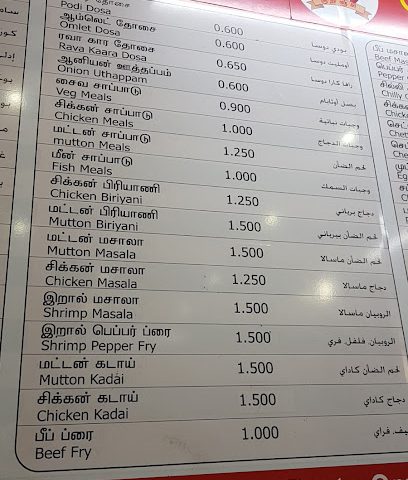 தோசை
Podi Dosa 0.600 بودي دوسا
ஆம்லெட் தோசை
Omlet Dosa 0.600 أومليت دوسا
ரவா கார தோசை
Rava Kaara Dosa 0.650 رافا كارا دوسا
ஆனியன் ஊத்தப்பம்
Onion Uthappam 0.600 بصل أوتابام
சைவ சாப்பாடு
Veg Meals 0.900 وجبات نباتية
சிக்கன் சாப்பாடு
Chicken Meals 1.000 وجبات الدجاج
மட்டன் சாப்பாடு
mutton Meals 1.250 لحم الضأن
மீன் சாப்பாடு
Fish Meals 1.000 وجبات السمك
சிக்கன் பிரியாணி
Chicken Biriyani 1.250 دجاج برياني
மட்டன் பிரியாணி
Mutton Biriyani 1.500 لحم الضأن بيرياني
மட்டன் மசாலா
Mutton Masala 1.500 لحم الضأن ماسالا
சிக்கன் மசாலா
Chicken Masala 1.250 دجاج ماسالا
இறால் மசாலா
Shrimp Masala 1.500 الروبيان ماسالا
இறால் பெப்பர் ப்ரை
Shrimp Pepper Fry 1.500 الروبيان. فلفل. فري
மட்டன் கடாய்
Mutton Kadai 1.500 لحم الضأن كاداي
சிக்கன் கடாய்
Chicken Kadai 1.500 دجاج كاداي
பீப் ப்ரை
Beef Fry 1.000 يف. فراي